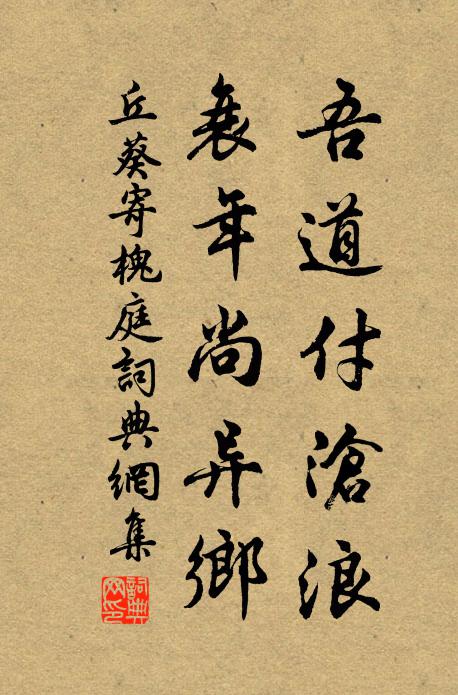 吾道付滄浪
衰年尚异鄉
丘葵寄槐庭詞典網集
詞典網印